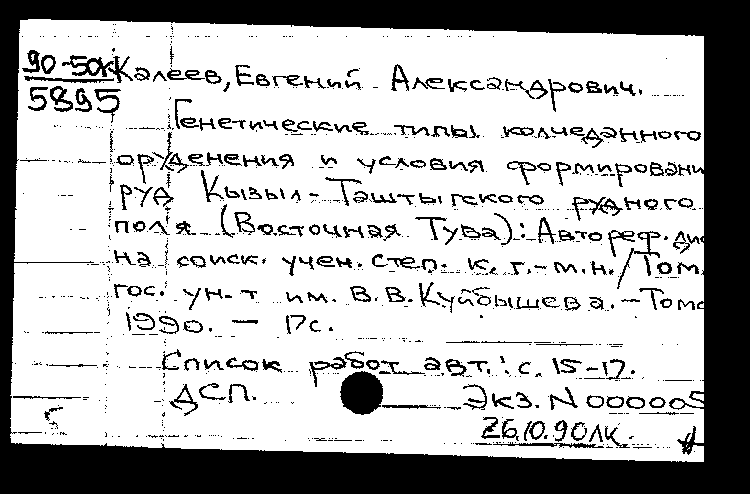 90-50к Калеев, Евгений Александрович.
5895
Генетические типы колчеданного
оруденения и условия формировани
руд Кызыл-Таштыгского рудного
поля (Восточная Тува): Автореф. дис
на соиск. учен. степ. к. г.-м.н. / Том.
гос. ун-т им. В.В.Куйбышева. - Томс
1990. - 17с.
Список работ авт.: с. 15-17.
ДСП. Экз. N 000005
26.10.90 ЛК.